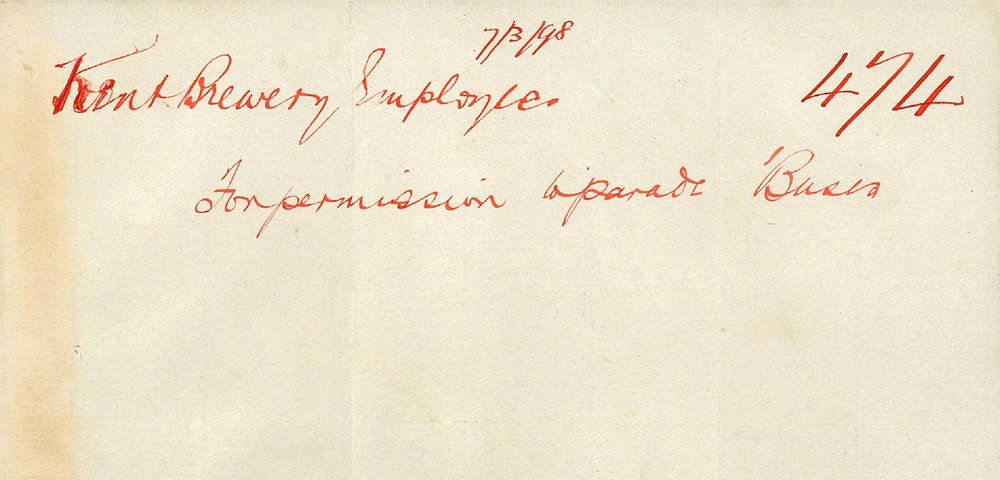 7/3/98
Kent Brewery Employees 474
For permission to parade 'Buses